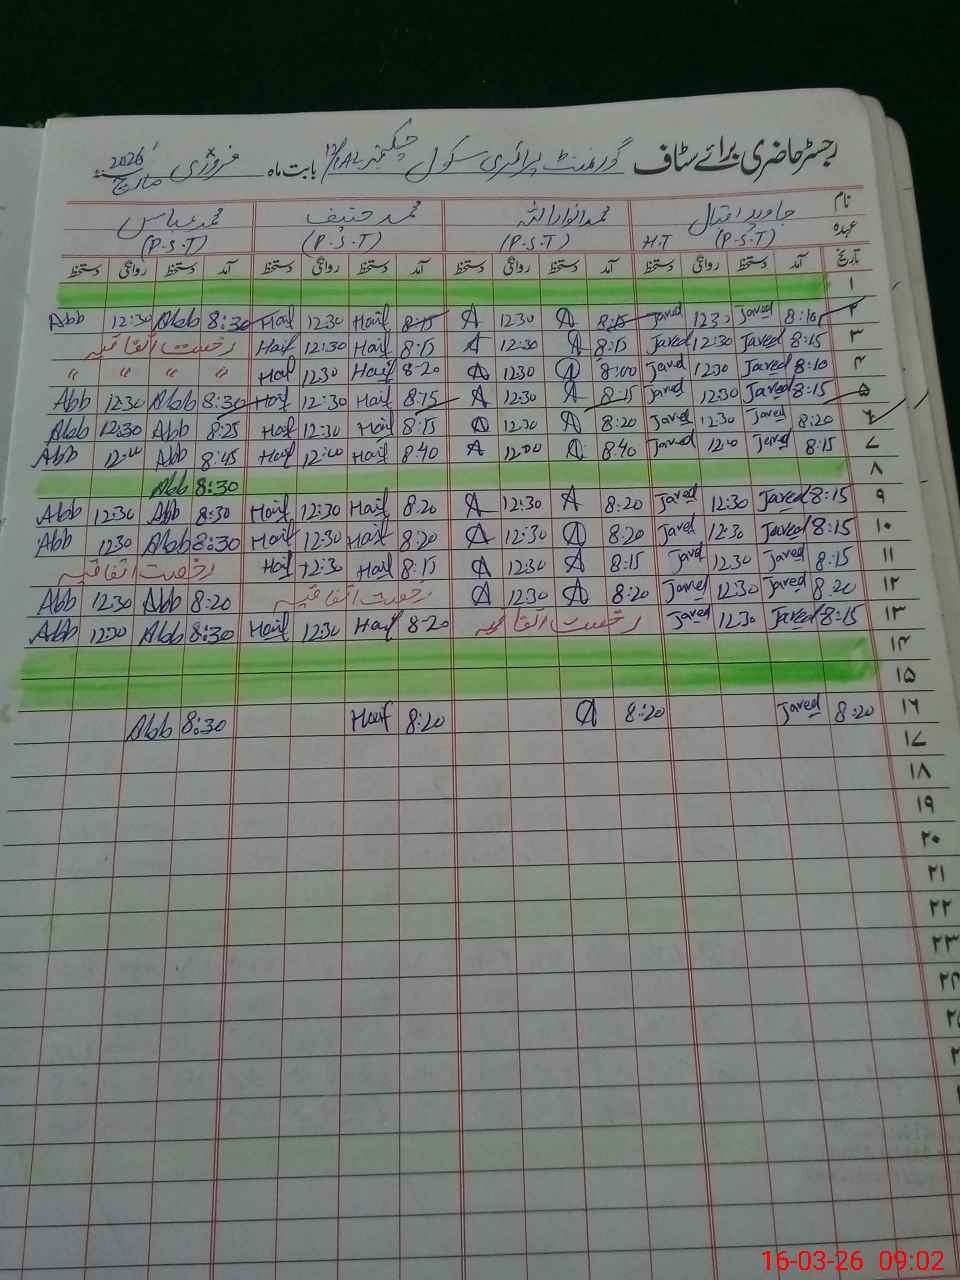 رجسٹر حاضری برائے سٹاف گورنمنٹ پرائمری سکول چکنمبر 12/1AL بابت ماہ فروری مارچ 2026ء
نام جاوید اقبال محمد انوار اللہ محمد حنیف محمد عباس
عہدہ (P.S.T) H.T (P.S.T) (P.S.T) (P.S.T)
تاریخ آمد دستخط روانگی دستخط آمد دستخط روانگی دستخط آمد دستخط روانگی دستخط آمد دستخط روانگی دستخط
۱
۲ 8:10 Javed 12:30 Javed 8:15 A 12:30 A 8:15 Hanif 12:30 Hanif 8:30 Abb 12:30 Abb
۳ 8:15 Javed 12:30 Javed 8:15 A 12:30 A 8:15 Hanif 12:30 Hanif رخصت اتفاقیہ
۴ 8:10 Javed 12:30 Javed 8:00 A 12:30 A 8:20 Hanif 12:30 Hanif " " " "
۵ 8:15 Javed 12:30 Javed 8:15 A 12:30 A 8:15 Hanif 12:30 Hanif 8:30 Abb 12:30 Abb
۶ 8:20 Javed 12:30 Javed 8:20 A 12:30 A 8:15 Hanif 12:30 Hanif 8:25 Abb 12:30 Abb
۷ 8:15 Javed 12:00 Javed 8:40 A 12:00 A 8:40 Hanif 12:00 Hanif 8:45 Abb 12:00 Abb
۸ 8:30 Abb
۹ 8:15 Javed 12:30 Javed 8:20 A 12:30 A 8:20 Hanif 12:30 Hanif 8:30 Abb 12:30 Abb
۱۰ 8:15 Javed 12:30 Javed 8:20 A 12:30 A 8:20 Hanif 12:30 Hanif 8:30 Abb 12:30 Abb
۱۱ 8:15 Javed 12:30 Javed 8:15 A 12:30 A 8:15 Hanif 12:30 Hanif رخصت اتفاقیہ
۱۲ 8:20 Javed 12:30 Javed 8:20 A 12:30 A رخصت اتفاقیہ 8:20 Abb 12:30 Abb
۱۳ 8:15 Javed 12:30 Javed رخصت اتفاقیہ 8:20 Hanif 12:30 Hanif 8:30 Abb 12:30 Abb
۱۴
۱۵
۱۶ 8:20 Javed 8:20 A 8:20 Hanif 8:30 Abb
۱۷
۱۸
۱۹
۲۰
۲۱
۲۲
۲۳
۲۴
۲۵
16-03-26 09:02